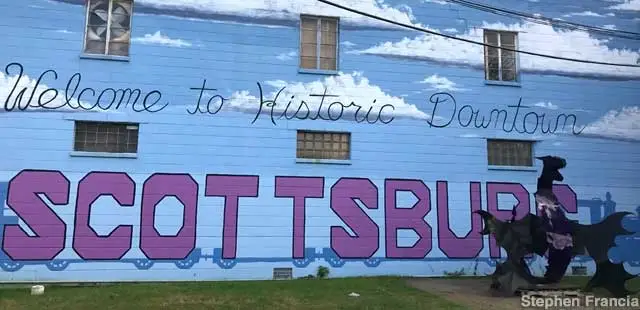 Welcome to Historic Downtown
SCOTTSBURG
Stephen Francia